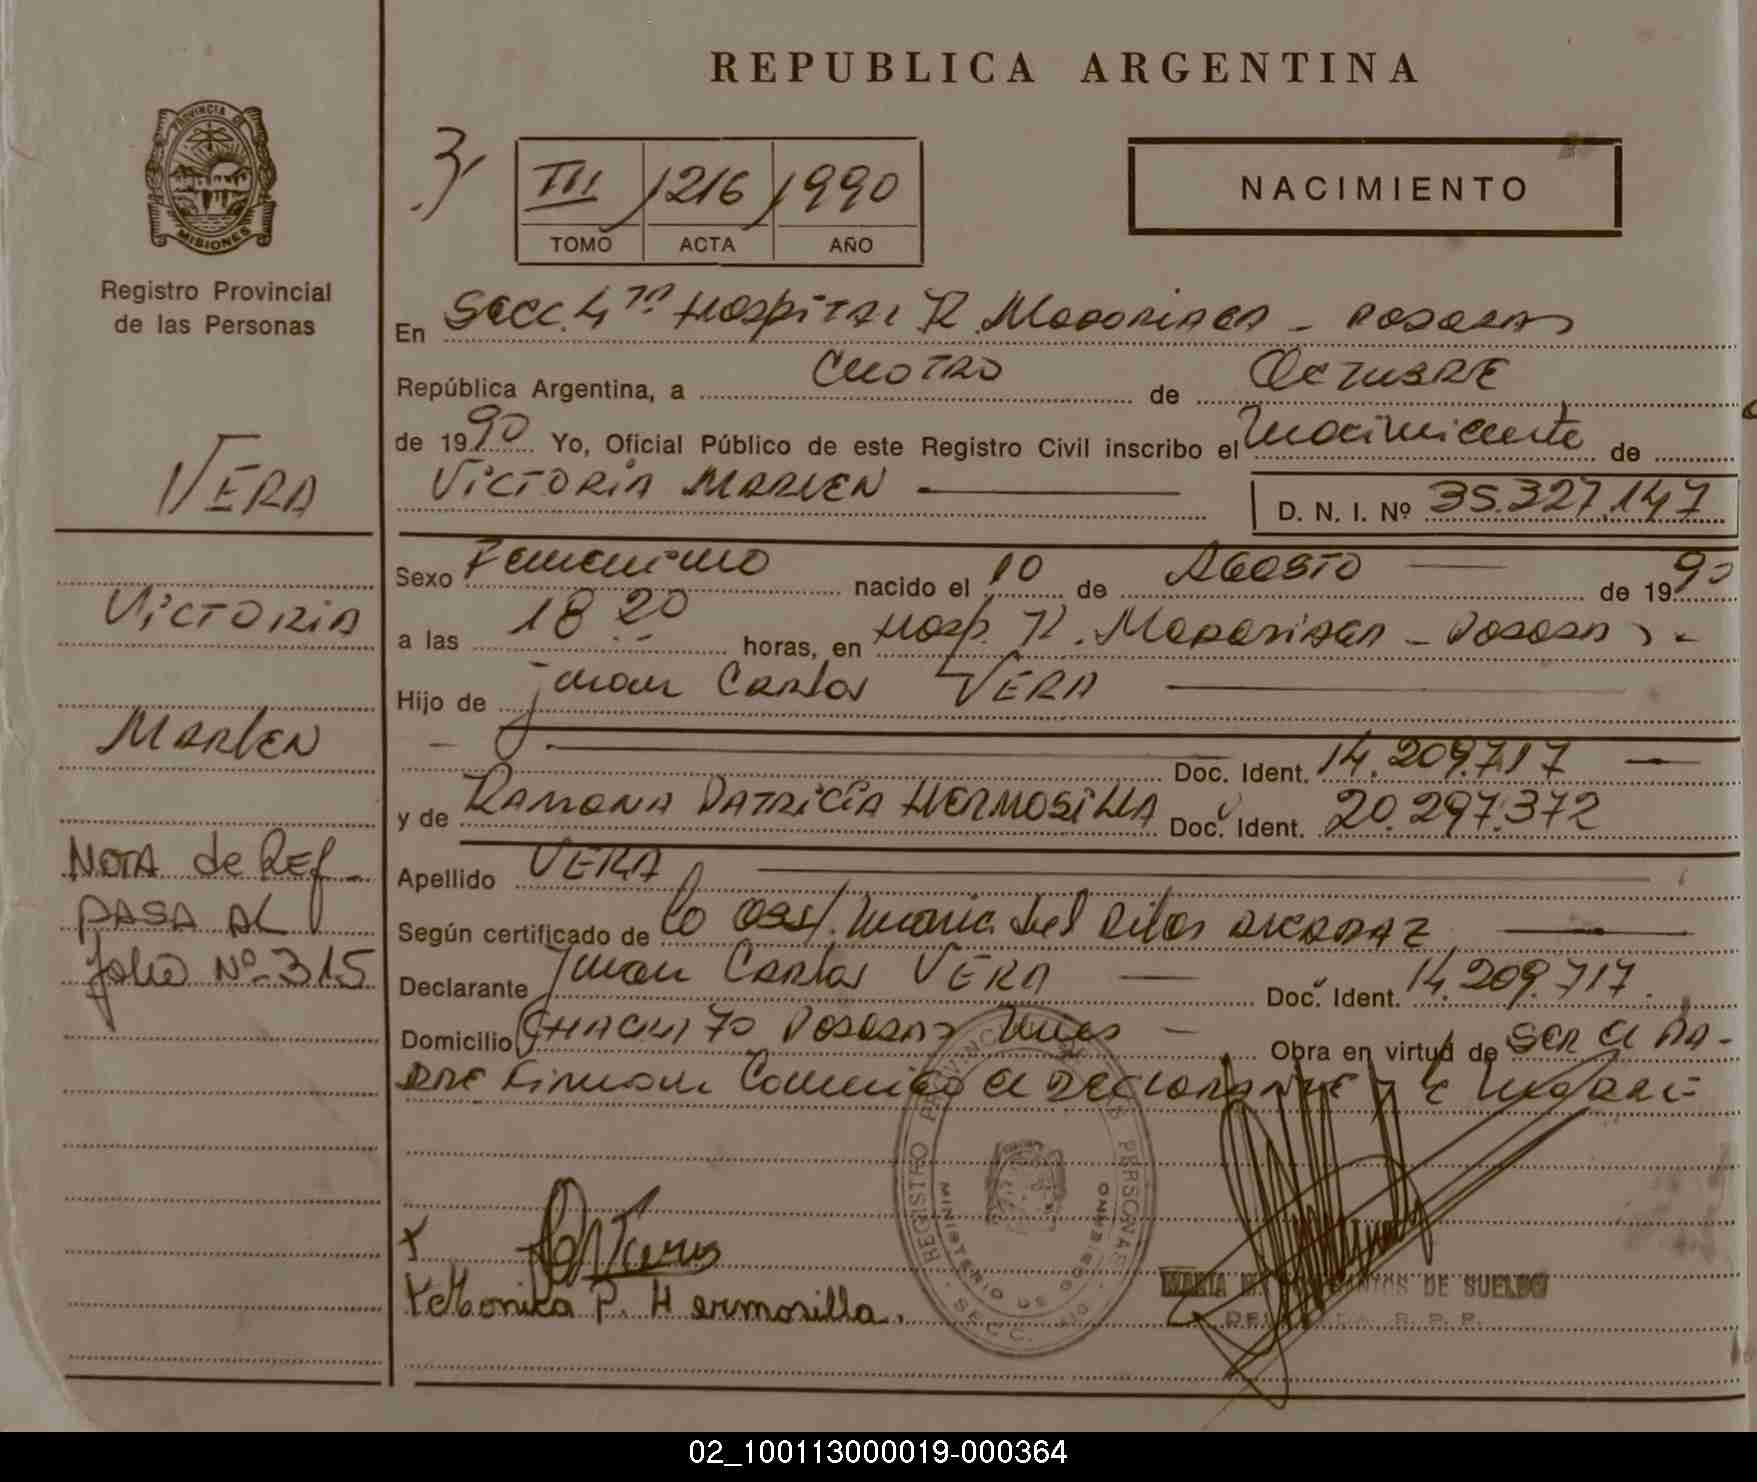 REPUBLICA ARGENTINA
PROVINCIA DE
MISIONES
Registro Provincial
de las Personas
3
III 1216 1990
TOMO ACTA AÑO
NACIMIENTO
En Secc. 4ta Hospital R. Madariaga - Posadas
República Argentina, a Cuatro de Octubre
de 1990 Yo, Oficial Público de este Registro Civil inscribo el Nacimiento de
VICTORIA MARLEN
D. N. I. Nº 35.327.147
Sexo Femenino nacido el 10 de Agosto de 1990
a las 18 20 horas, en Hosp. R. Madariaga - Posadas
Hijo de Juan Carlos VERA
Doc. Ident. 14.209.717
y de RAMONA PATRICIA HERMOSILLA Doc. Ident. 20.297.372
Apellido VERA
Según certificado de la Obst. Maria del Pilar
Declarante Juan Carlos VERA Doc. Ident. 14.209.717
Domicilio Posadas Mnes Obra en virtud de ser el pa-
dre Firman Conmigo el Declarante y la Madre
Hermosilla.
REGISTRO PROVINCIAL DE LAS PERSONAS
MINISTERIO DE GOBIERNO
SECC.
DE SUELDO
R. P. P.
VERA
VICTORIA
Marlen
NOTA de Ref
PASA AL
folio Nº 315
02_100113000019-000364